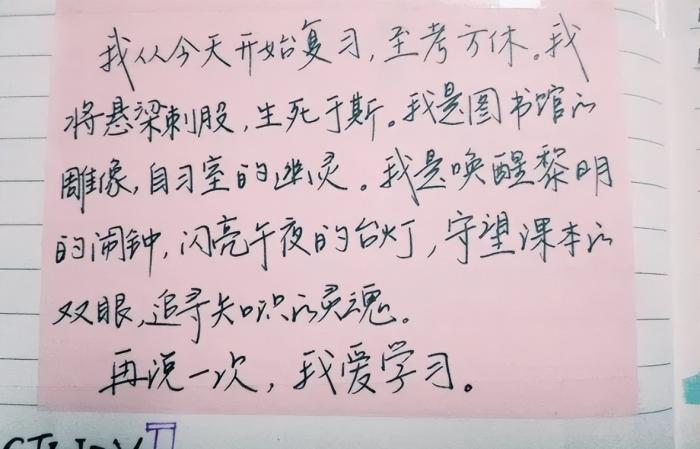 我从今天开始复习，至考方休。我
将悬梁刺股，生死于斯。我是图书馆的
雕像，自习室的幽灵。我是唤醒黎明
的闹钟，闪亮午夜的台灯，守望课本的
双眼，追寻知识的灵魂。
再说一次，我爱学习。